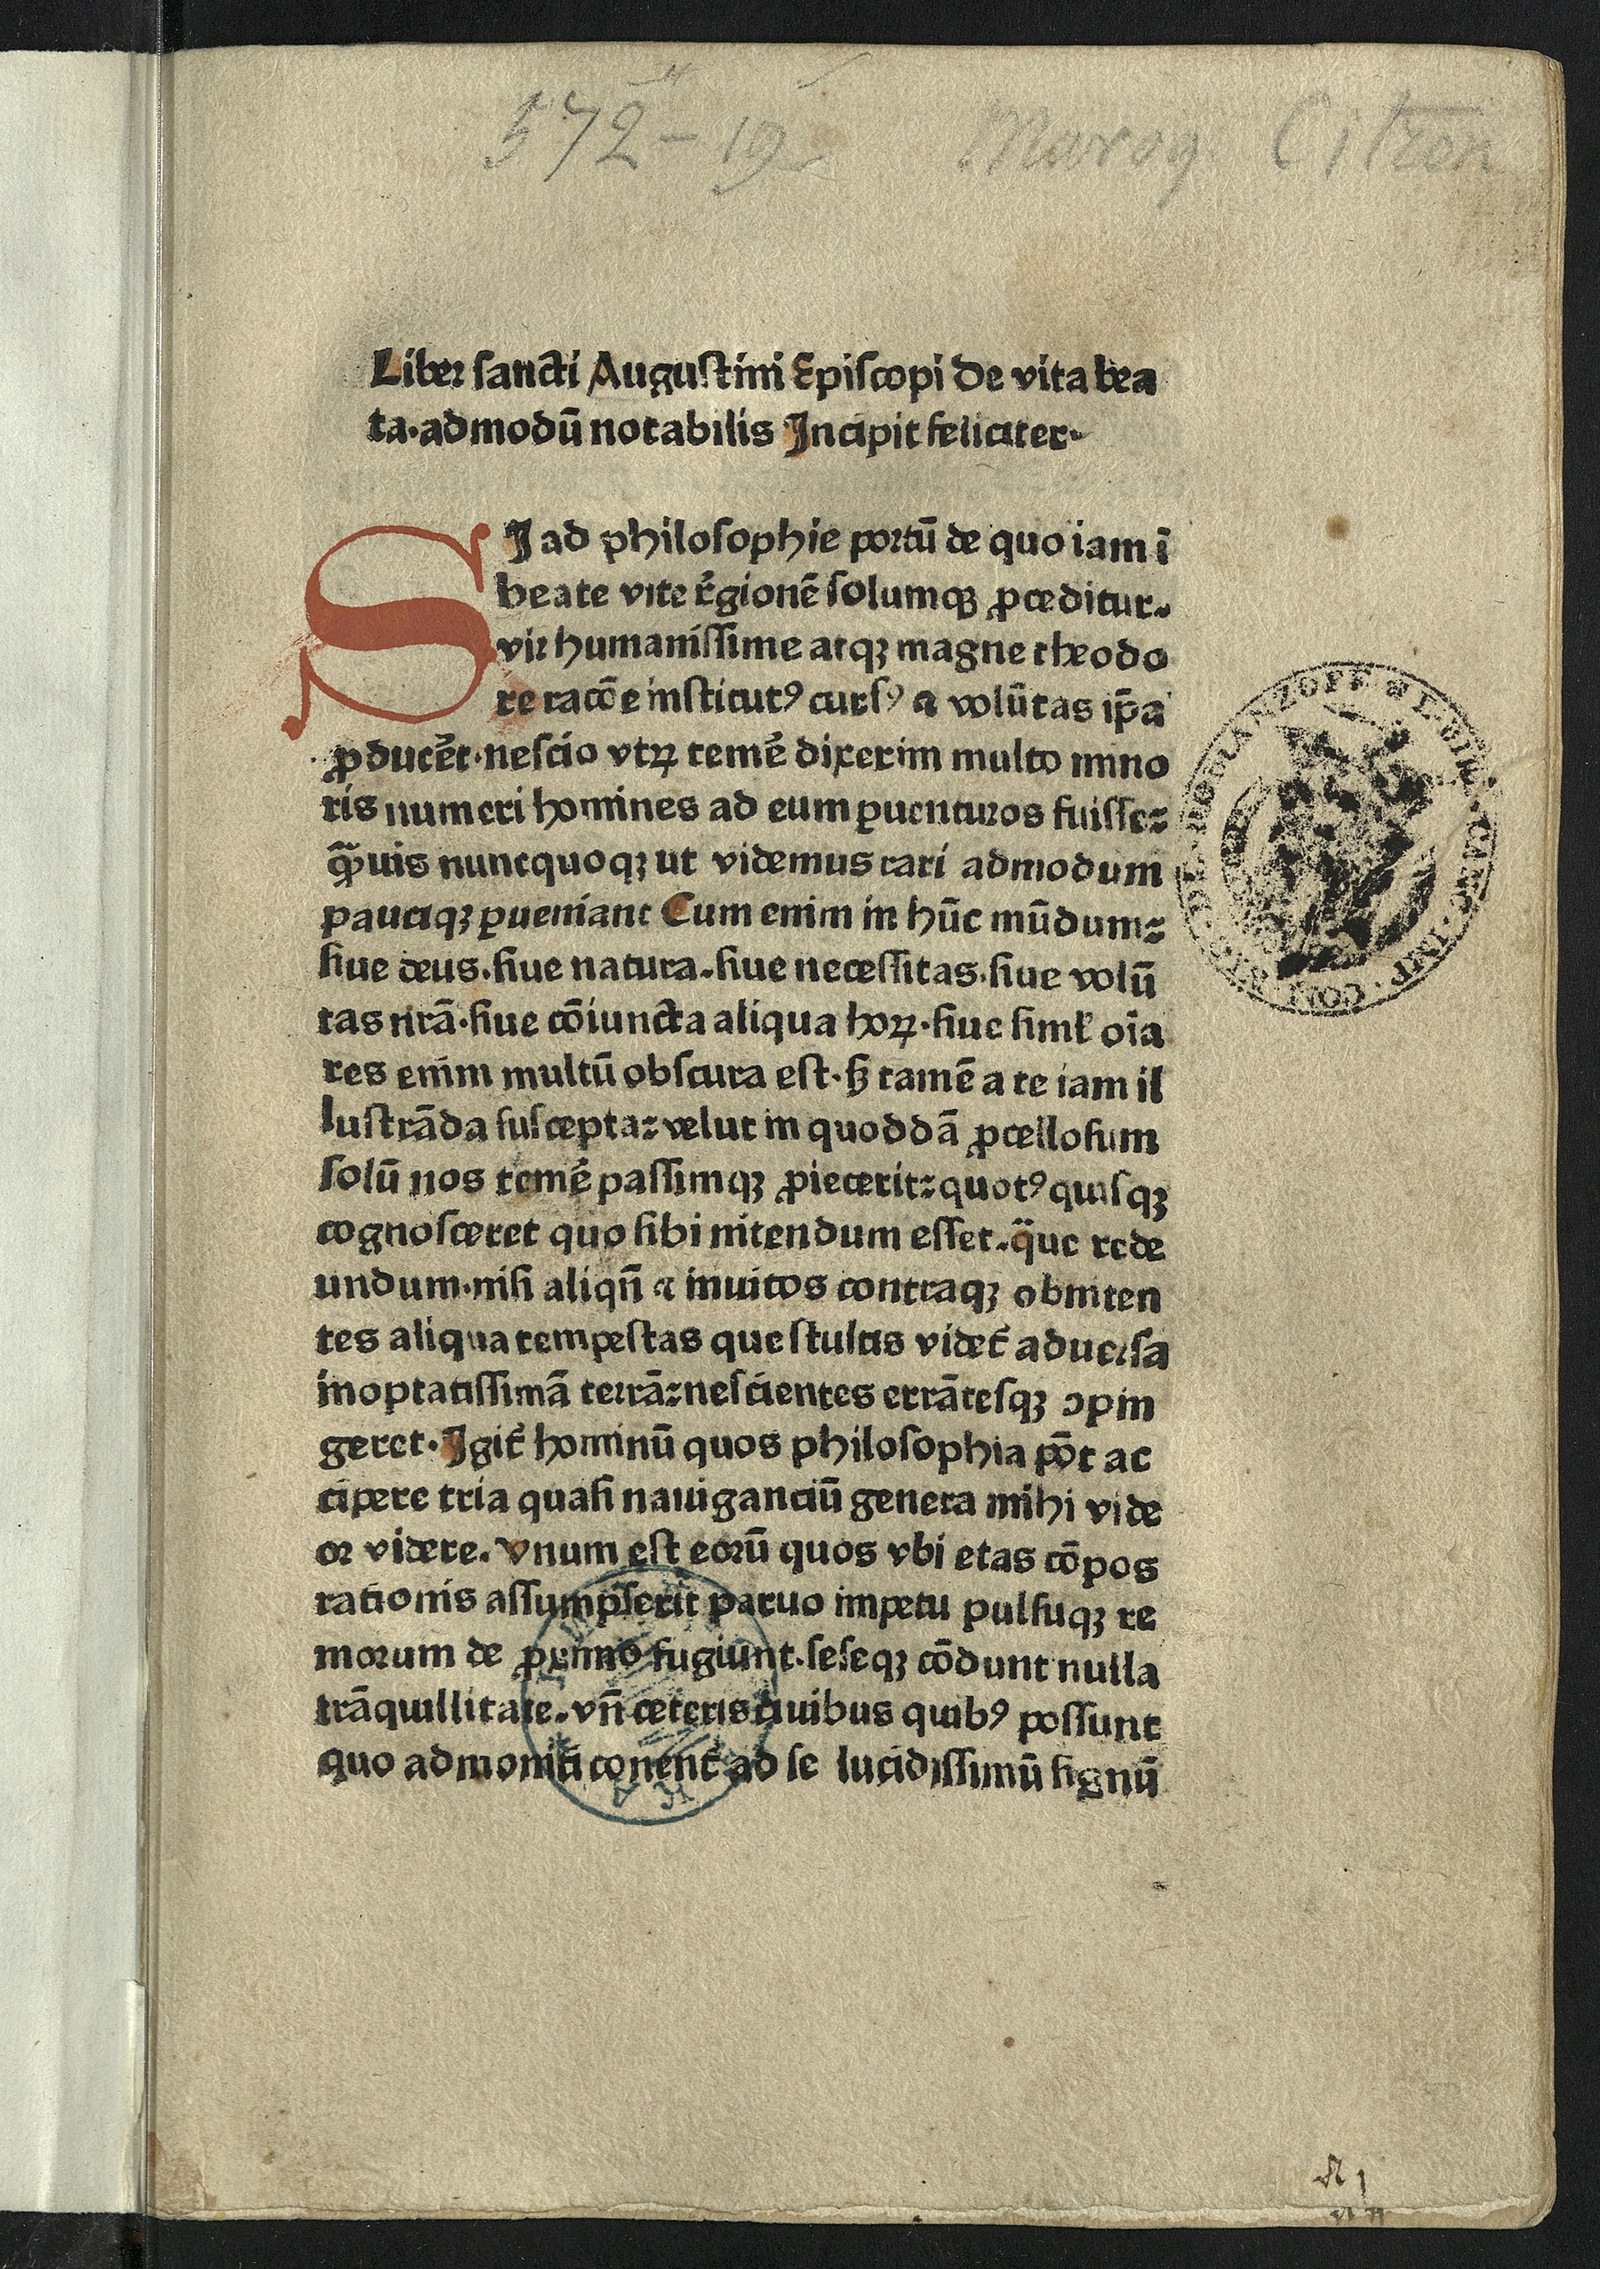 572 - 19 Maroq. Citron
Liber sancti Augustini Episcopi de vita bea
ta·admodū notabilis Incipit feliciter·
SI ad philosophie portū de quo iam ī
beate vite r̄gionē solumqꝫ ꝓceditur.
vir humanissime atqꝫ magne theodo
re racōe institutꝰ cursꝰ ⁊ volūtas ip̄a
ꝓducēt·nescio vtꝝ temē dixerim multo mino
ris numeri homines ad eum ꝑuenturos fuisse⁊
q̄uis nuncquoqꝫ ut videmus rari admodum
pauciqꝫ ꝑueniant Cum enim in hūc mūdum⁊
siue deus.siue natura.siue necessitas.siue volū
tas nrā·siue cōiuncta aliqua hoꝝ·siue simł oīa
res enim multū obscura est·sꝫ tamē a te iam il
lustrāda suscepta⁊ velut in quoddā ꝓcellosum
solū nos temē passimqꝫ ꝓiecerit⁊ quotꝰ quisqꝫ
cognosceret quo sibi nitendum esset.q̈ue rede
undum.nisi aliqn̄ ⁊ inuitos contraqꝫ obniten
tes aliqua tempestas que stultis videt̄ aduersa
inoptatissimā terrā⁊ nescientes errātesqꝫ ꝯpin
geret·Igit̄ hominū quos philosophia pōt ac
cipere tria quasi nauiganciū genera mihi vide
or videre. Vnum est eorū quos vbi etas cōpos
rationis assumpserit paruo impetu pulsuqꝫ re
morum de ꝓximo fugiunt.seseqꝫ cōdunt nulla
trāquillitate.vn̄ ceteris ciuibus quibꝰ possunt
quo admoniti conent̄ ad se lucidissimū signū